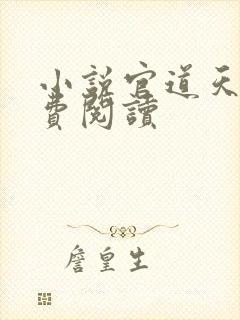 小說官道天
費閱讀
詹皇生